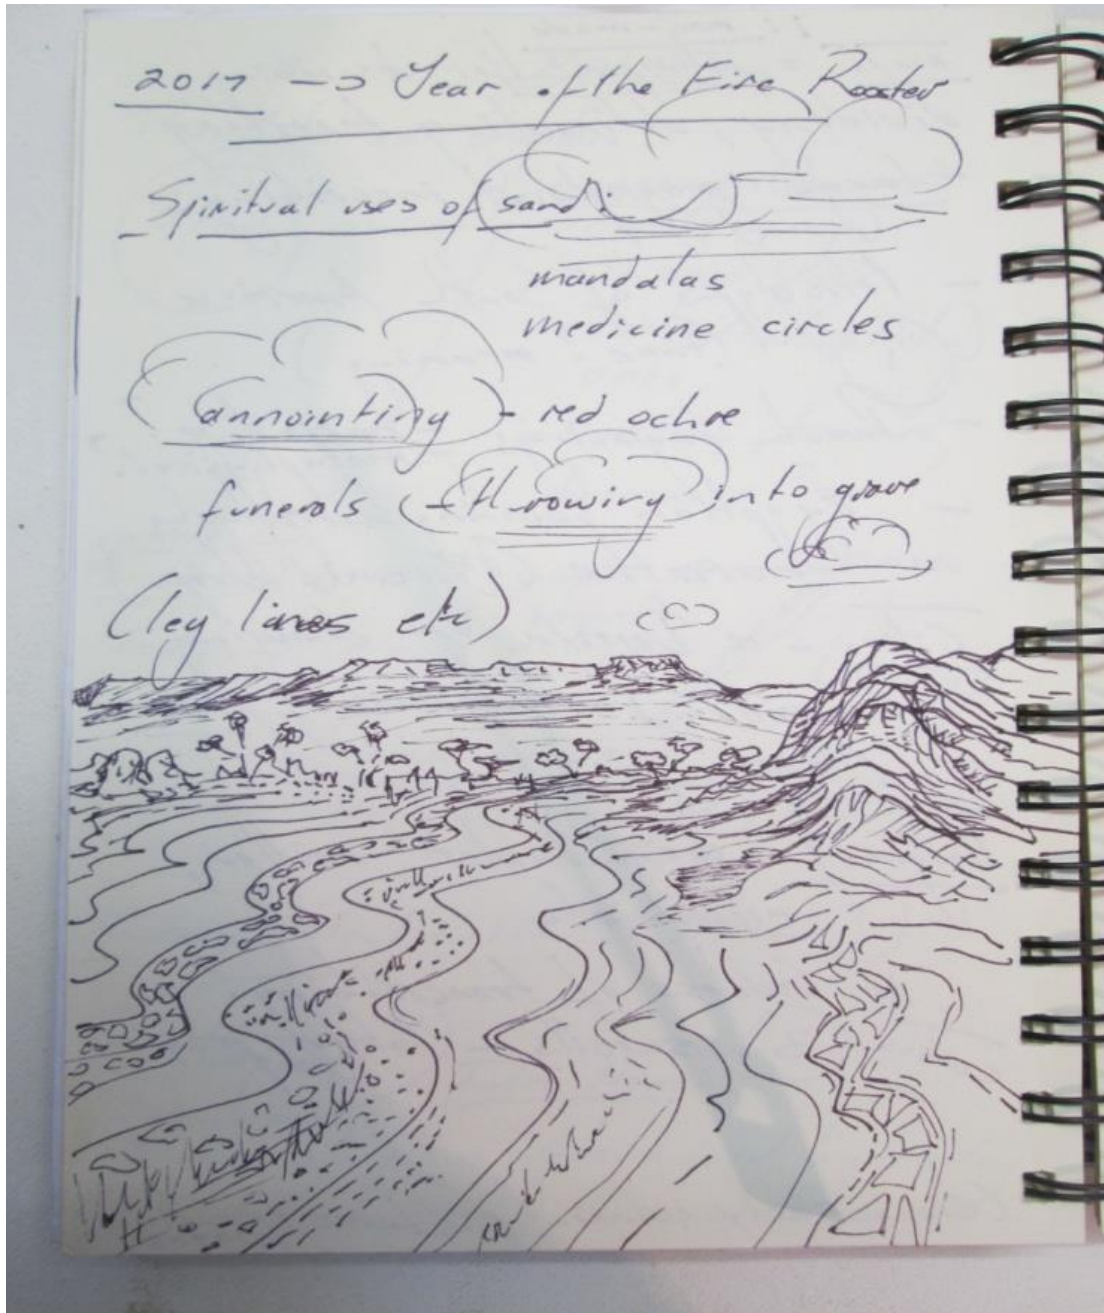 2017 → Year of the Fire Rooster
Spiritual uses of sand:
mandalas
medicine circles
annointing - red ochre
funerals - throwing into grave
(ley lines etc)